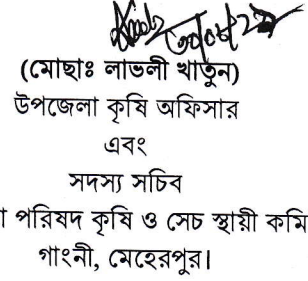 (মোছাঃ লাভলী খাতুন)
উপজেলা কৃষি অফিসার
এবং
সদস্য সচিব
পরিষদ কৃষি ও সেচ স্থায়ী কমি
গাংনী, মেহেরপুর।